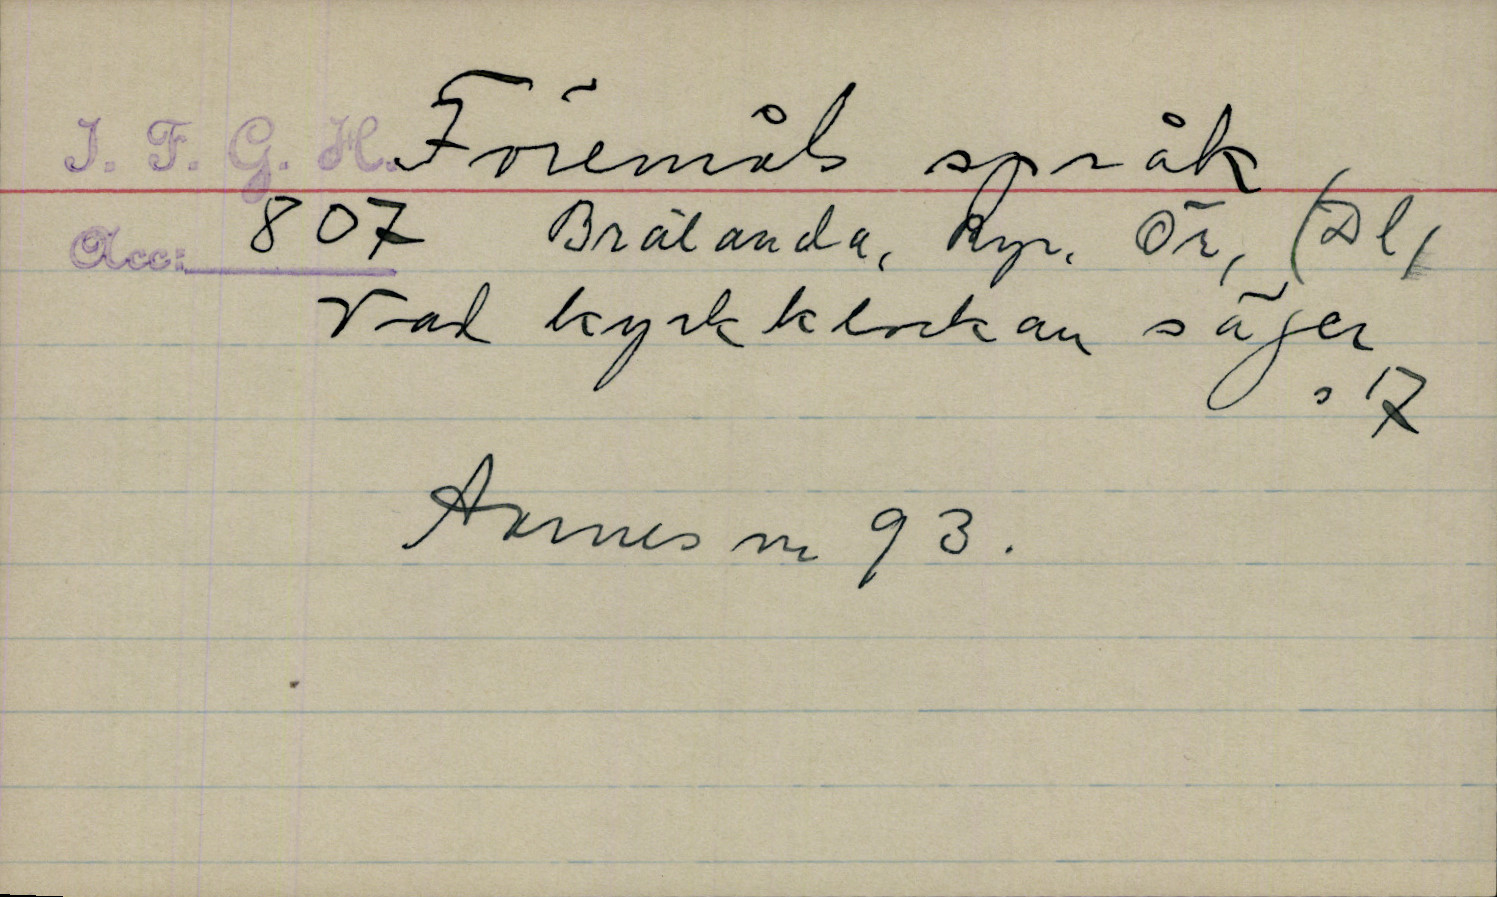 I. F. G. H. Föremåls språk
Acc: 807 Brålanda, Ryr. Ör, (Dl)
Vad kyrkklockan säger
s 17
Ämnes nr 93.